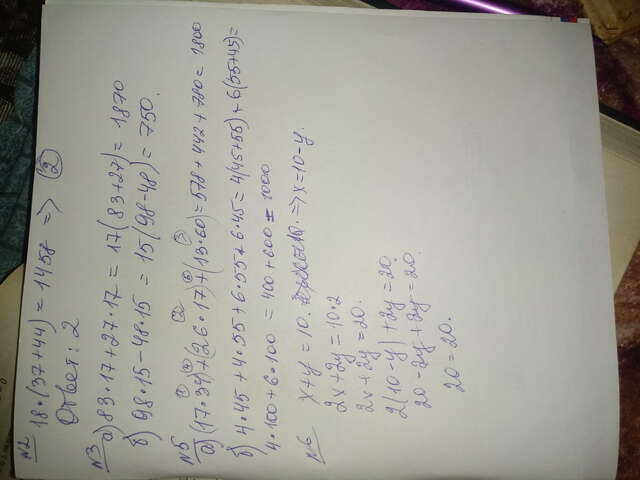 №2
18·(37+44) = 1458 => ②
Ответ: 2
№3
а) 83·17+27·17 = 17(83+27) = 1870
б) 98·15-48·15 = 15(98-48) = 750.
№5
а) (17·34)+(26·17)+(13·60)=578+442+780=1800
б) 4·45+4·55+6·55+6·45=4(45+55)+6(55+45)=
4·100+6·100 = 400+600=1000
№6
x+y=10. => x=10-y.
2x+2y=10·2
2x+2y=20.
2(10-y)+2y=20.
20-2y+2y=20.
20=20.